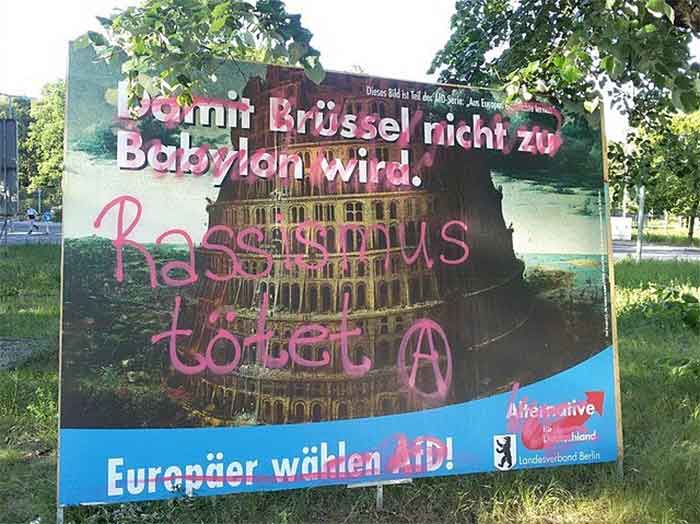 Dieses Bild ist Teil der AfD-Serie: „Aus Europas
Damit Brüssel nicht zu
Babylon wird.
Rassismus
tötet A
Alternative
für
Deutschland
Landesverband Berlin
Europäer wählen AfD!